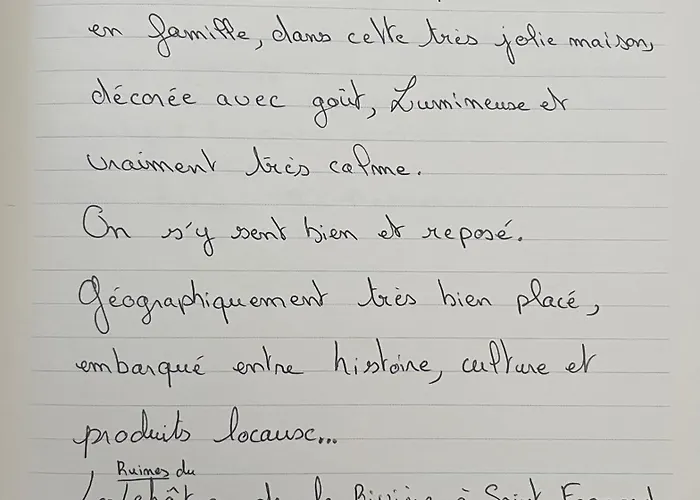 en famille, dans cette très jolie maison,
décorée avec goût, Lumineuse et
vraiment très calme.
On s'y sent bien et reposé.
Géographiquement très bien placé,
embarqué entre histoire, culture et
produits locaux...
Ruines du
de la Rivière à Saint